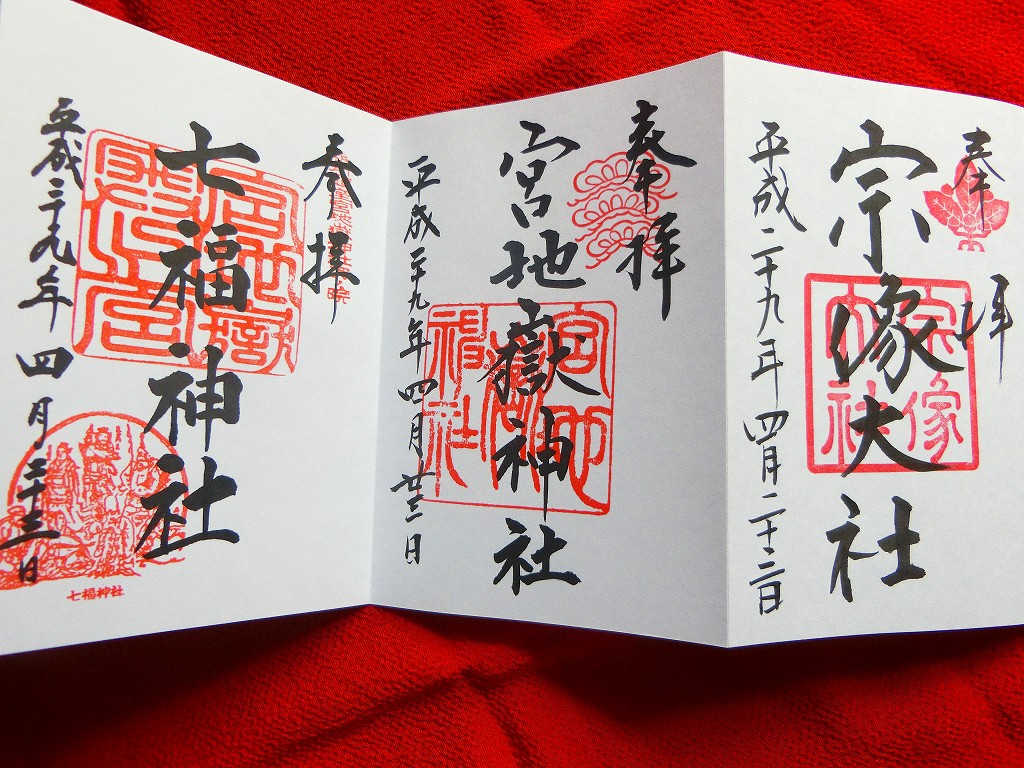 奉拝
宗像大社
平成二十九年四月二十二日
宗像
大社
奉拝
宮地嶽神社
平成二十九年四月廿三日
宮地
嶽神
社
奉拝
七福神社
平成二十九年四月二十三日
宮地嶽
七福神社